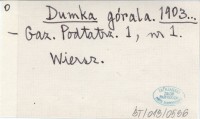 0
Dumka górala. 1903...
– Gaz. Podtatrz. 1, nr 1.
Wiersz.
BT/013/0556